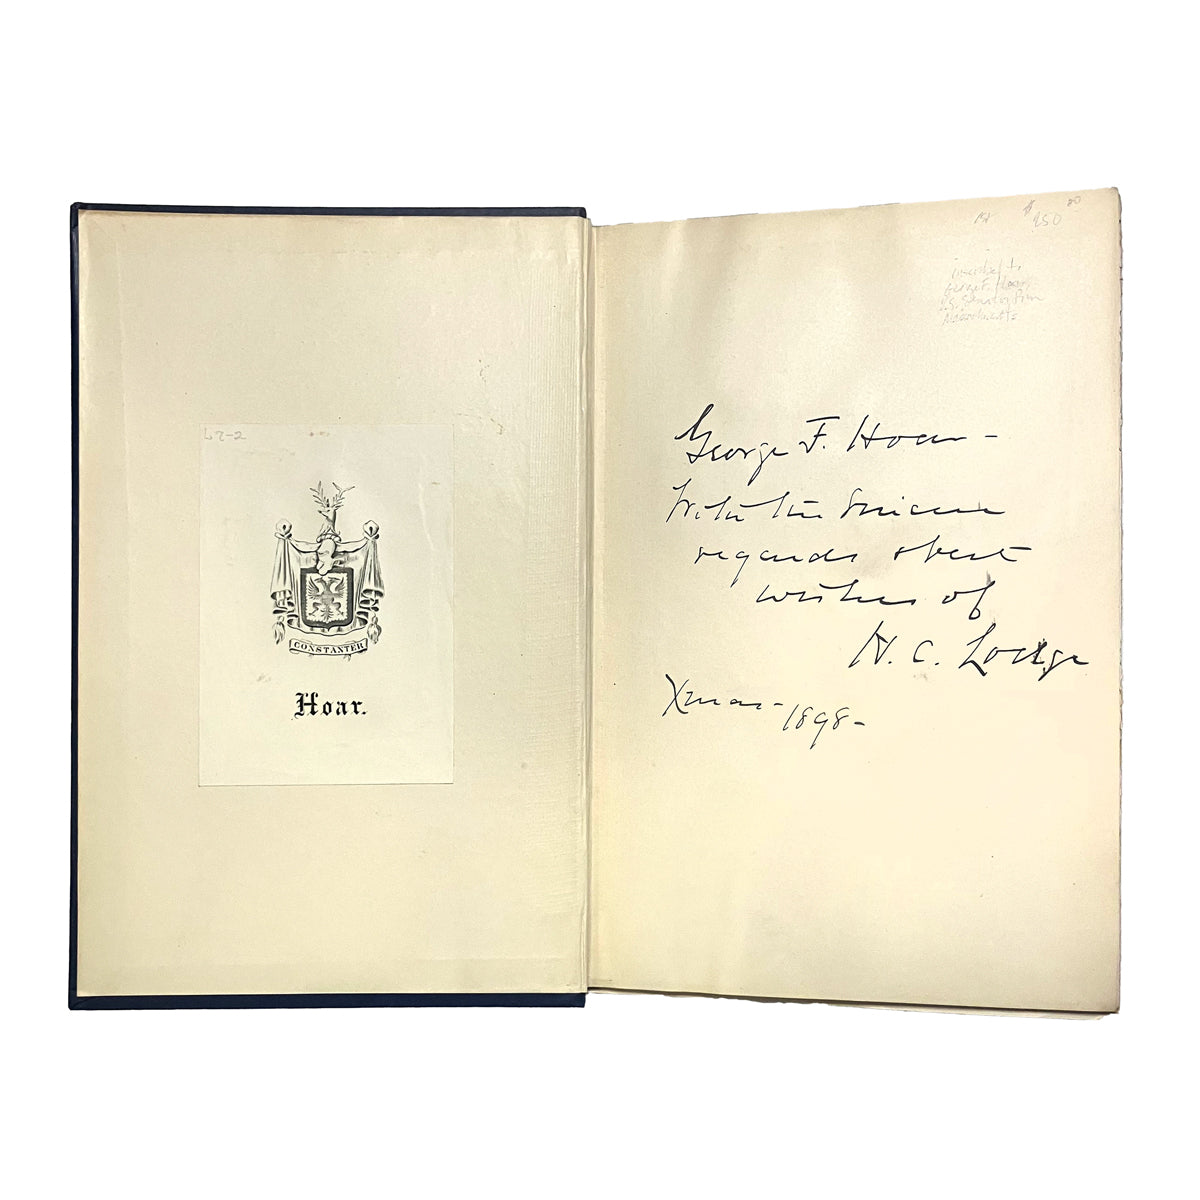 67-2
CONSTANTER
Hoar.
1st $ 950 00
inscribed to
George F. Hoar,
U.S. Senator from
Massachusetts
George F. Hoar -
With the sincere
regards & best
wishes of
H. C. Lodge
Xmas - 1898 -